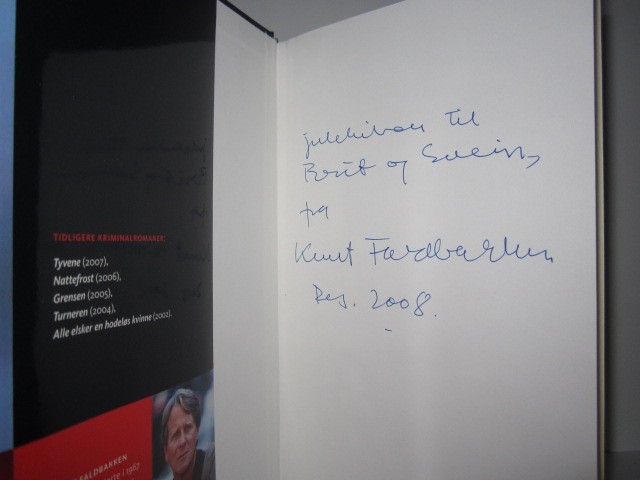 TIDLIGERE KRIMINALROMANER:
Tyvene (2007),
Nattefrost (2006),
Grensen (2005),
Turneren (2004),
Alle elsker en hodeløs kvinne (2002).
ALDBAKKEN
rte i 1967
til
og Svein,
Knut Faldbakken
Des. 2008.